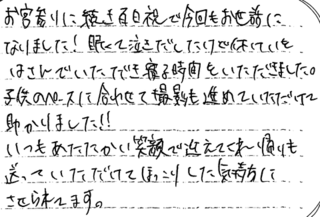 お宮参りに続き百日祝で今回もお世話に
なりました!眠くて泣きだしたけど休けいを
はさんでいただき寝る時間をいただきました。
子供のペースに合わせて撮影も進めていただけて
助かりました!!
いつもあたたかい笑顔で迎えてくれ帰りも
送っていただけてほっこりした気持ちに
させられてます。